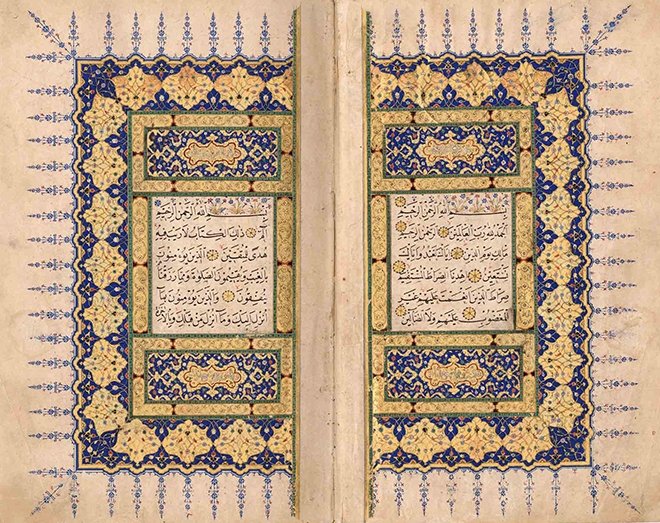 بسم الله الرحمن الرحيم
الحمد لله رب العالمين الرحمن الرحيم
مالك يوم الدين اياك نعبد واياك
نستعين اهدنا الصراط المستقيم
صراط الذين انعمت عليهم غير
المغضوب عليهم ولا الضالين
بسم الله الرحمن الرحيم
الم ذلك الكتاب لا ريب فيه
هدى للمتقين الذين يؤمنون
بالغيب ويقيمون الصلوة ومما رزقناهم
ينفقون والذين يؤمنون بما
انزل اليك وما انزل من قبلك وبالاخرة